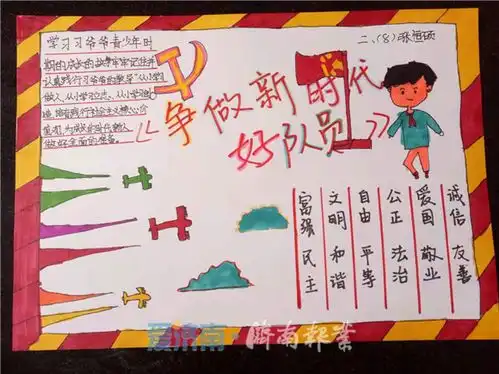 学习习爷爷青少年时
期的成长的故事牢牢记住并
认真践行习爷爷的教导"从小学习
做人、从小学习立志、从小学习创
造,培育践行社会主义核心价
值观,为成长为时代新人
做好全面的准备。
二、(8)张恒硕
争做新时代
好队员
富强 民主
文明 和谐
自由 平等
公正 法治
爱国 敬业
诚信 友善
爱济南·济南报业